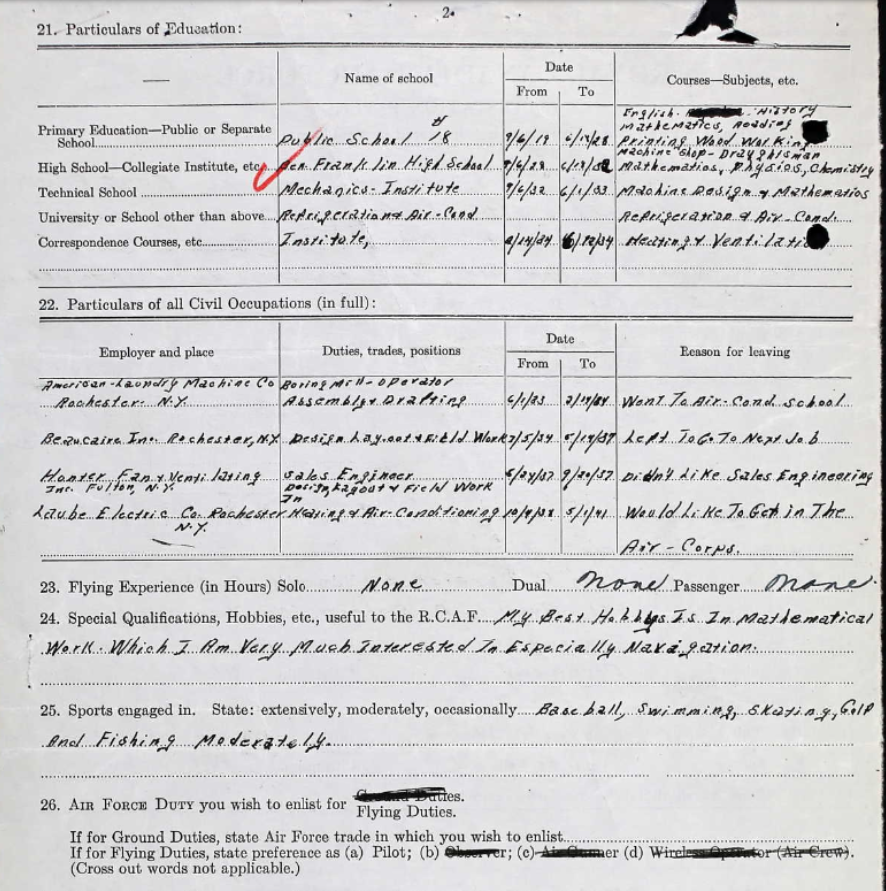 2.
21. Particulars of Education:
Name of school
Date
From
To
Courses—Subjects, etc.
English. History
Mathematics, Reading
Primary Education—Public or Separate
School
Public School # 18
9/6/19
6/13/28
Printing Wood Working
Machine Shop - Draughtsman
High School—Collegiate Institute, etc.
Ben Franklin High School
Mathematics, Physics, Chemistry
Technical School
Mechanics - Institute
9/6/32
6/1/33
Machine Design & Mathematics
University or School other than above
Refrigeration & Air-Cond
Refrigeration & Air-Cond.
Correspondence Courses, etc
Institute,
Heating & Ventilatio
22. Particulars of all Civil Occupations (in full):
Employer and place
Duties, trades, positions
Date
From
To
Reason for leaving
American-Laundry Machine Co
Boring Mill-Operator
Rochester. N.Y.
Assembly & Drafting
Went To Air-Cond School
Beaucaire Inc. Rochester, N.Y.
Design Layout & Field Work
Left To Go To Next Job
Hunter Fan & Ventilating
Sales Engineer
Didn't Like Sales Engineering
Inc. Fulton, N.Y.
Design, Layout & Field Work
In
Laube Electric Co. Rochester
Heating & Air-Conditioning
5/1/41
Would Like To Get in The
N.Y.
Air-Corps.
23. Flying Experience (in Hours) Solo None Dual None Passenger None.
24. Special Qualifications, Hobbies, etc., useful to the R.C.A.F. My Best Hobbys Is In Mathematical
Work. Which I Am Very Much Interested In Especially Navagation.
25. Sports engaged in. State: extensively, moderately, occasionally Baseball, Swimming, Skating, Golf
And Fishing Moderately.
26. Air Force Duty you wish to enlist for Ground Duties.
Flying Duties.
If for Ground Duties, state Air Force trade in which you wish to enlist
If for Flying Duties, state preference as (a) Pilot; (b) Observer; (c) Air Gunner (d) Wireless Operator (Air Crew).
(Cross out words not applicable.)